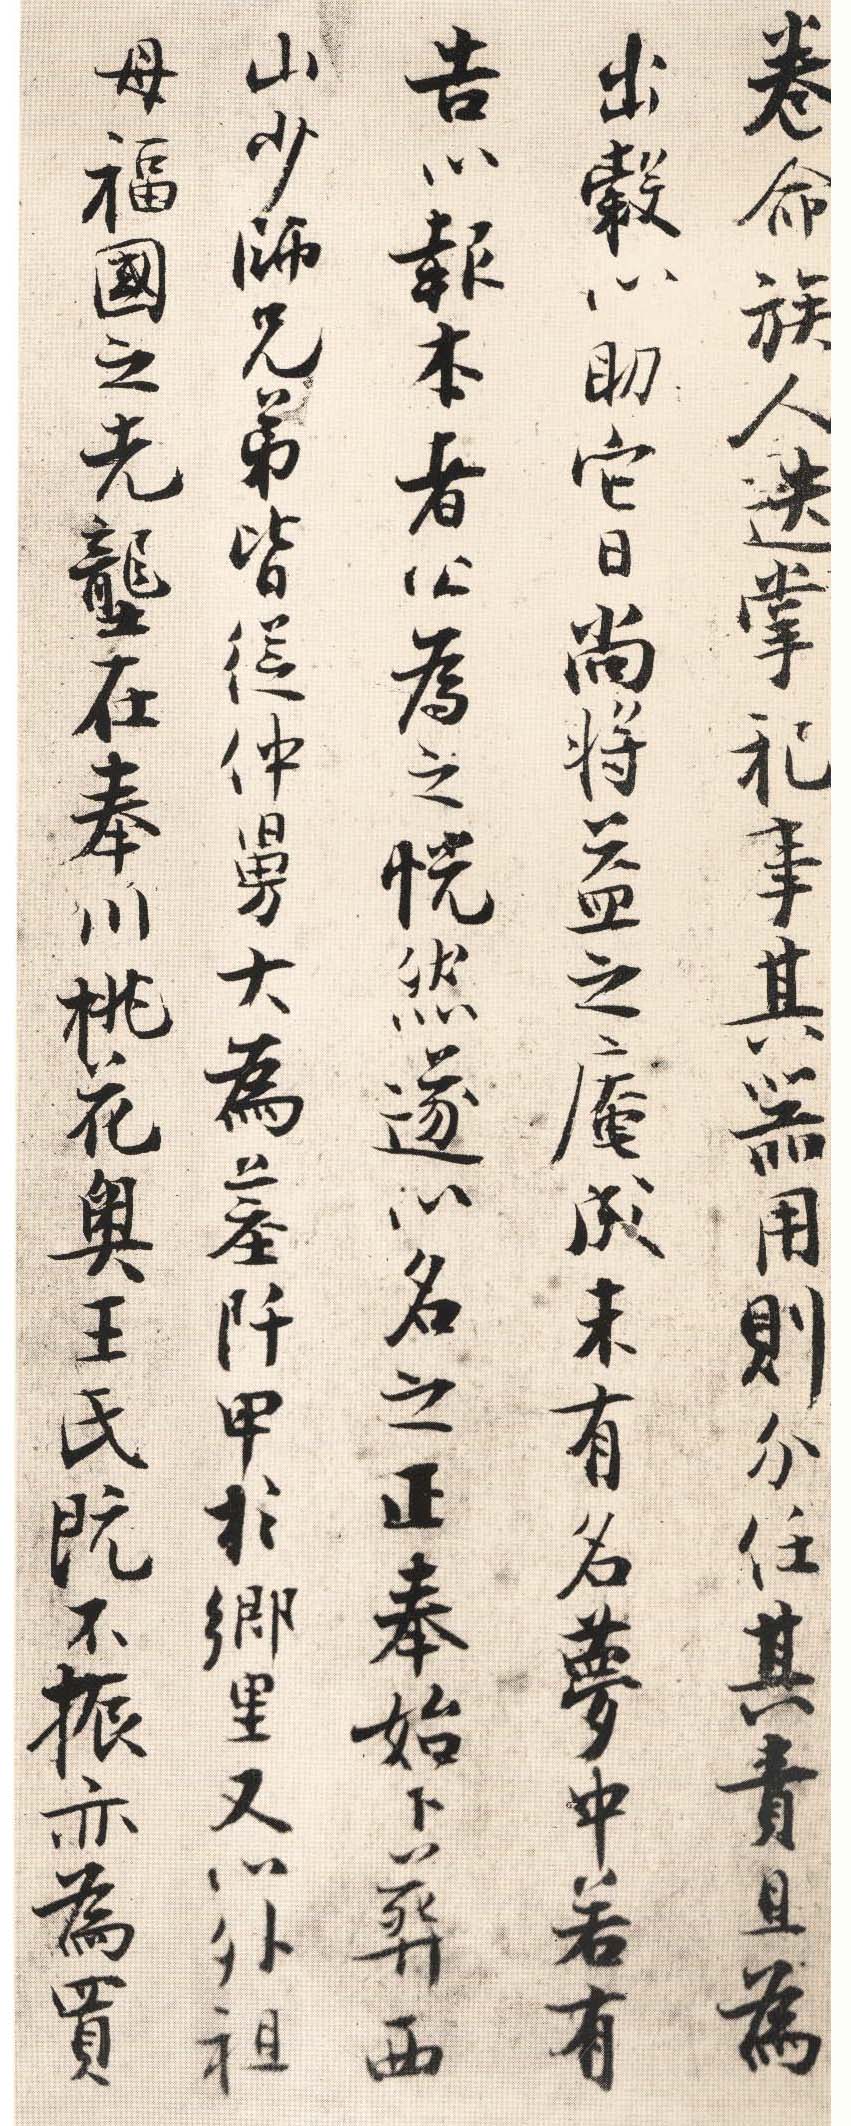 卷命族人迭掌祀事其器用則分任其責且為
出穀以助它日尚将益之庵成未有名夢中若有
告以報本者公為之恍然遂以名之正奉始卜葬西
山少師兄弟皆從仲舅大為墓阡甲於鄉里又以外祖
母福國之先壟在奉川桃花奥王氏既不振亦為買